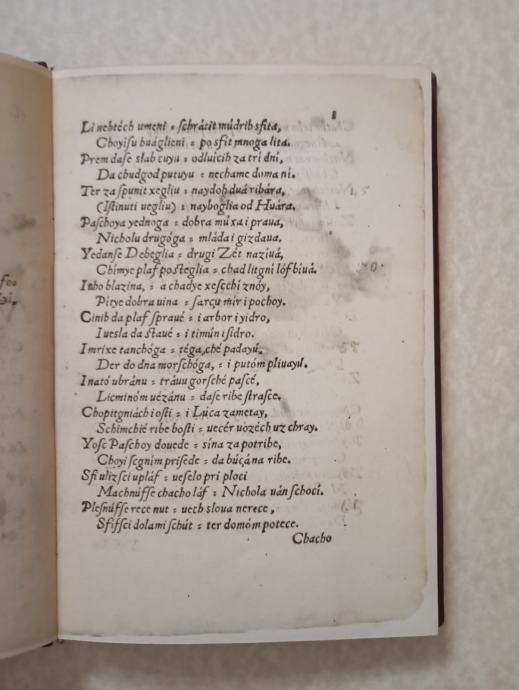 8
Li nebtéch umęni ꞉ ſchrátit múdrih sfita,
Choyiſu buáglieni ꞉ po sfit mnoga lita.
Prem daſe slab cuyu ꞉ odluicih za tri dní,
Da chudgod putuyu ꞉ nechame doma ni.
Ter za ſpunit xegliu ꞉ naydoh duá ribára,
(Iſtinuti uegliu) ꞉ nayboglia od Huára.
Paſchoya yednoga ꞉ dobra múxa i praua,
Nicholu drugóga ꞉ mláda i gizdaua.
Yedanſe Debeglia ꞉ drugi Zét naziuá,
Chímye plaf poſteglia ꞉ chad litgni lóf biuá.
Inho blazina, ꞉ a chadye xeſcchí znóy,
Pitye dobra uina ꞉ ſarçu mir i pochoy.
Cinih da plaf ſpraué ꞉ i arbor i yidro,
I uesla da ſtaué ꞉ i timún i ſidro.
I mrixe tanchóga ꞉ téga, ché padayú,
Der do dna morſchóga, ꞉ i putóm pliuayú.
Inató ubránu ꞉ tráuu gorſché paſcé,
Licminóm uézánu ꞉ daſe ribe ſtraſce.
Chopitgniách i oſti ꞉ i Lúca zametay,
Schimchié ribe boſti ꞉ uecér uozéch uz chray.
Yoſc Paſchoy douede ꞉ sína za potribe,
Choyi ſegním priſede ꞉ da búçána ribe.
Sfi ulizſci upláf ꞉ ueſelo pri ploci
Machnúſſe chacho láf ꞉ Nichola uán ſchoci.
Pleſnúſſe rece nut ꞉ uech sloua nerece,
Sfiſſci dolami ſchút ꞉ ter domóm potece.
Chacho